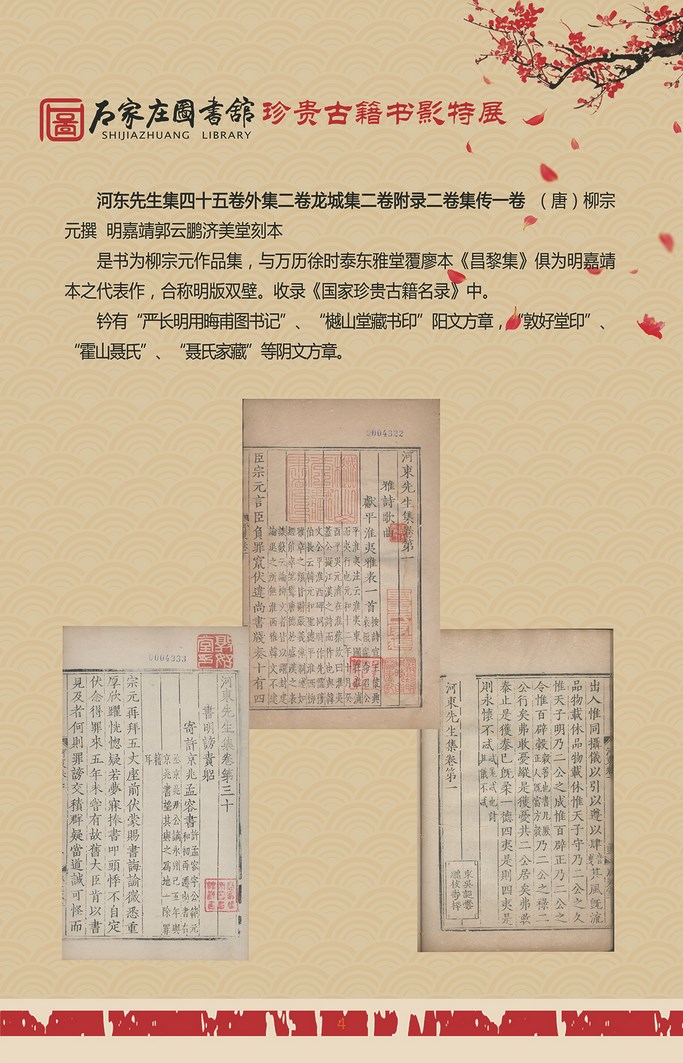 石家庄圖書館 珍贵古籍书影特展
SHIJIAZHUANG LIBRARY
河东先生集四十五卷外集二卷龙城集二卷附录二卷集传一卷 （唐）柳宗
元撰 明嘉靖郭云鹏济美堂刻本
是书为柳宗元作品集，与万历徐时泰东雅堂覆廖本《昌黎集》俱为明嘉靖
本之代表作，合称明版双壁。收录《国家珍贵古籍名录》中。
钤有“严长明用晦甫图书记”、“樾山堂藏书印”阳文方章，“敦好堂印”、
“霍山聂氏”、“聂氏家藏”等阴文方章。
0004322
河東先生集卷第一
雅詩歌曲
獻平淮夷雅表一首
臣宗元言臣負罪竄伏違尚書牋奏十有四
0004333
河東先生集卷第三十
書明謗責躬
寄許京兆孟容書
宗元再拜五丈座前伏蒙賜書誨諭微悉重
厚欣躍恍惚疑若夢寐捧書叩頭悸不自定
伏念得罪來五年未嘗有故舊大臣肯以書
見及者何則罪謗交積群疑當道誠可怪而
出入惟同攝儀以引以遵以肆其風既流
品物載休品物載休惟天子守乃二公之久
惟天子明乃二公之成惟百辟正乃二公之
令惟百辟穀乃二公之祿二
公行矣弗敢憂縱是獲憂共二公居矣弗敢
泰止是獲泰已既柔一德四夷是則四夷是
則永懷不忒
河東先生集卷第一
4